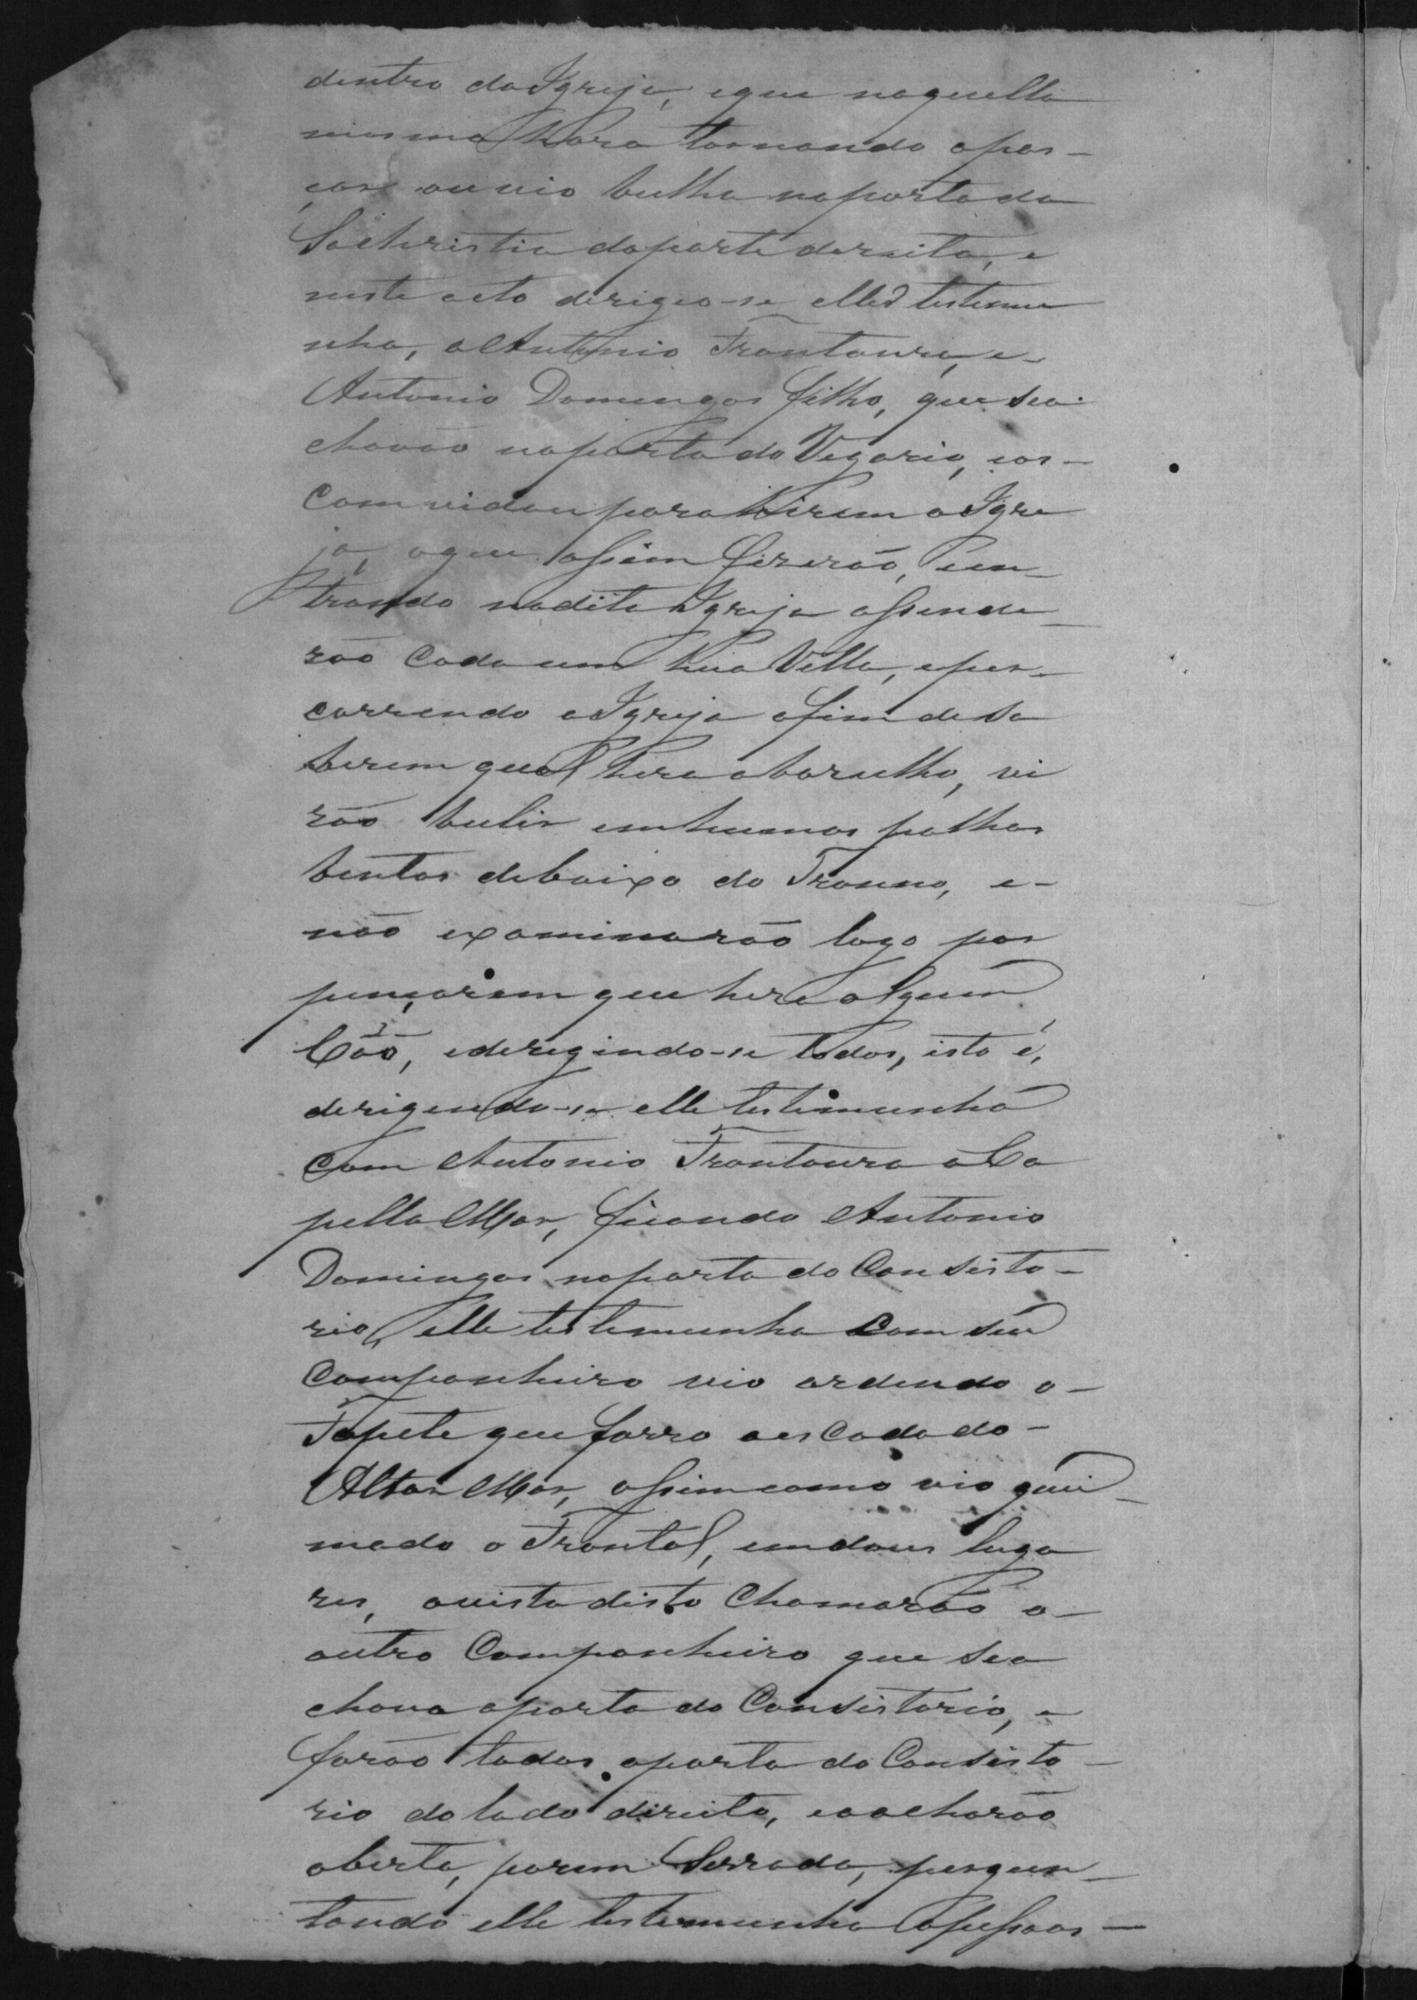 dentro da Igreja, e que naquella
mesma hora tornando a pas-
çar ouvio bulha na porta da
Sachristia da parte dereita, e
neste acto derigeo-se elle testemu
nha, a Antonio Frontoura, e-
Antonio Domingos filho, que sea
chavão na porta do Vegario, eos-
comvidou para hirem a Igre
ja, o que assim fizerão, e en-
trando na dita Igreja assende-
rão cada um hua Vella, e per-
correndo a Igreja afim de sa
berem qual hera o barulho, vi
rão bulir em humas palhas
bentas debaixo do Tronno, e-
não examinarão logo por
pençarem que hera algum
Cão, e deregindo-se todos, isto é,
derigendo-se elle testimunha
com Antonio Frontoura a Ca
pella Mor, ficando Antonio
Domingos na porta do Consisto-
rio, elle testemunha com seu
Companheiro vio ardendo o-
Tapete que forra a escada do-
Altar Mor, assim como vio quei-
mado o Frontal, em dous luga
res, avista disto Chamarão o-
outro Companheiro que sea
chava a porta do Consistorio, e
forão todos a porta do Consisto-
rio do lado direito, e a acharão
aberta, porem Serrada, pergun-
tando elle testemunha as pessoas-